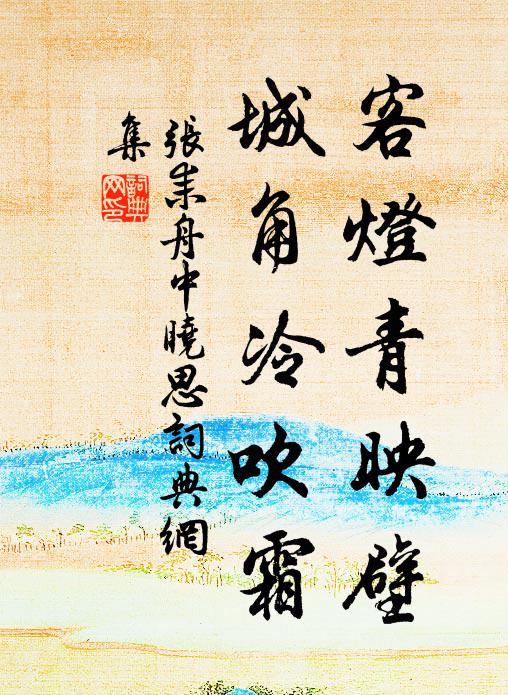 客燈青映壁
城角冷吹霜
張耒舟中曉思詞典網
集
詞典
網印